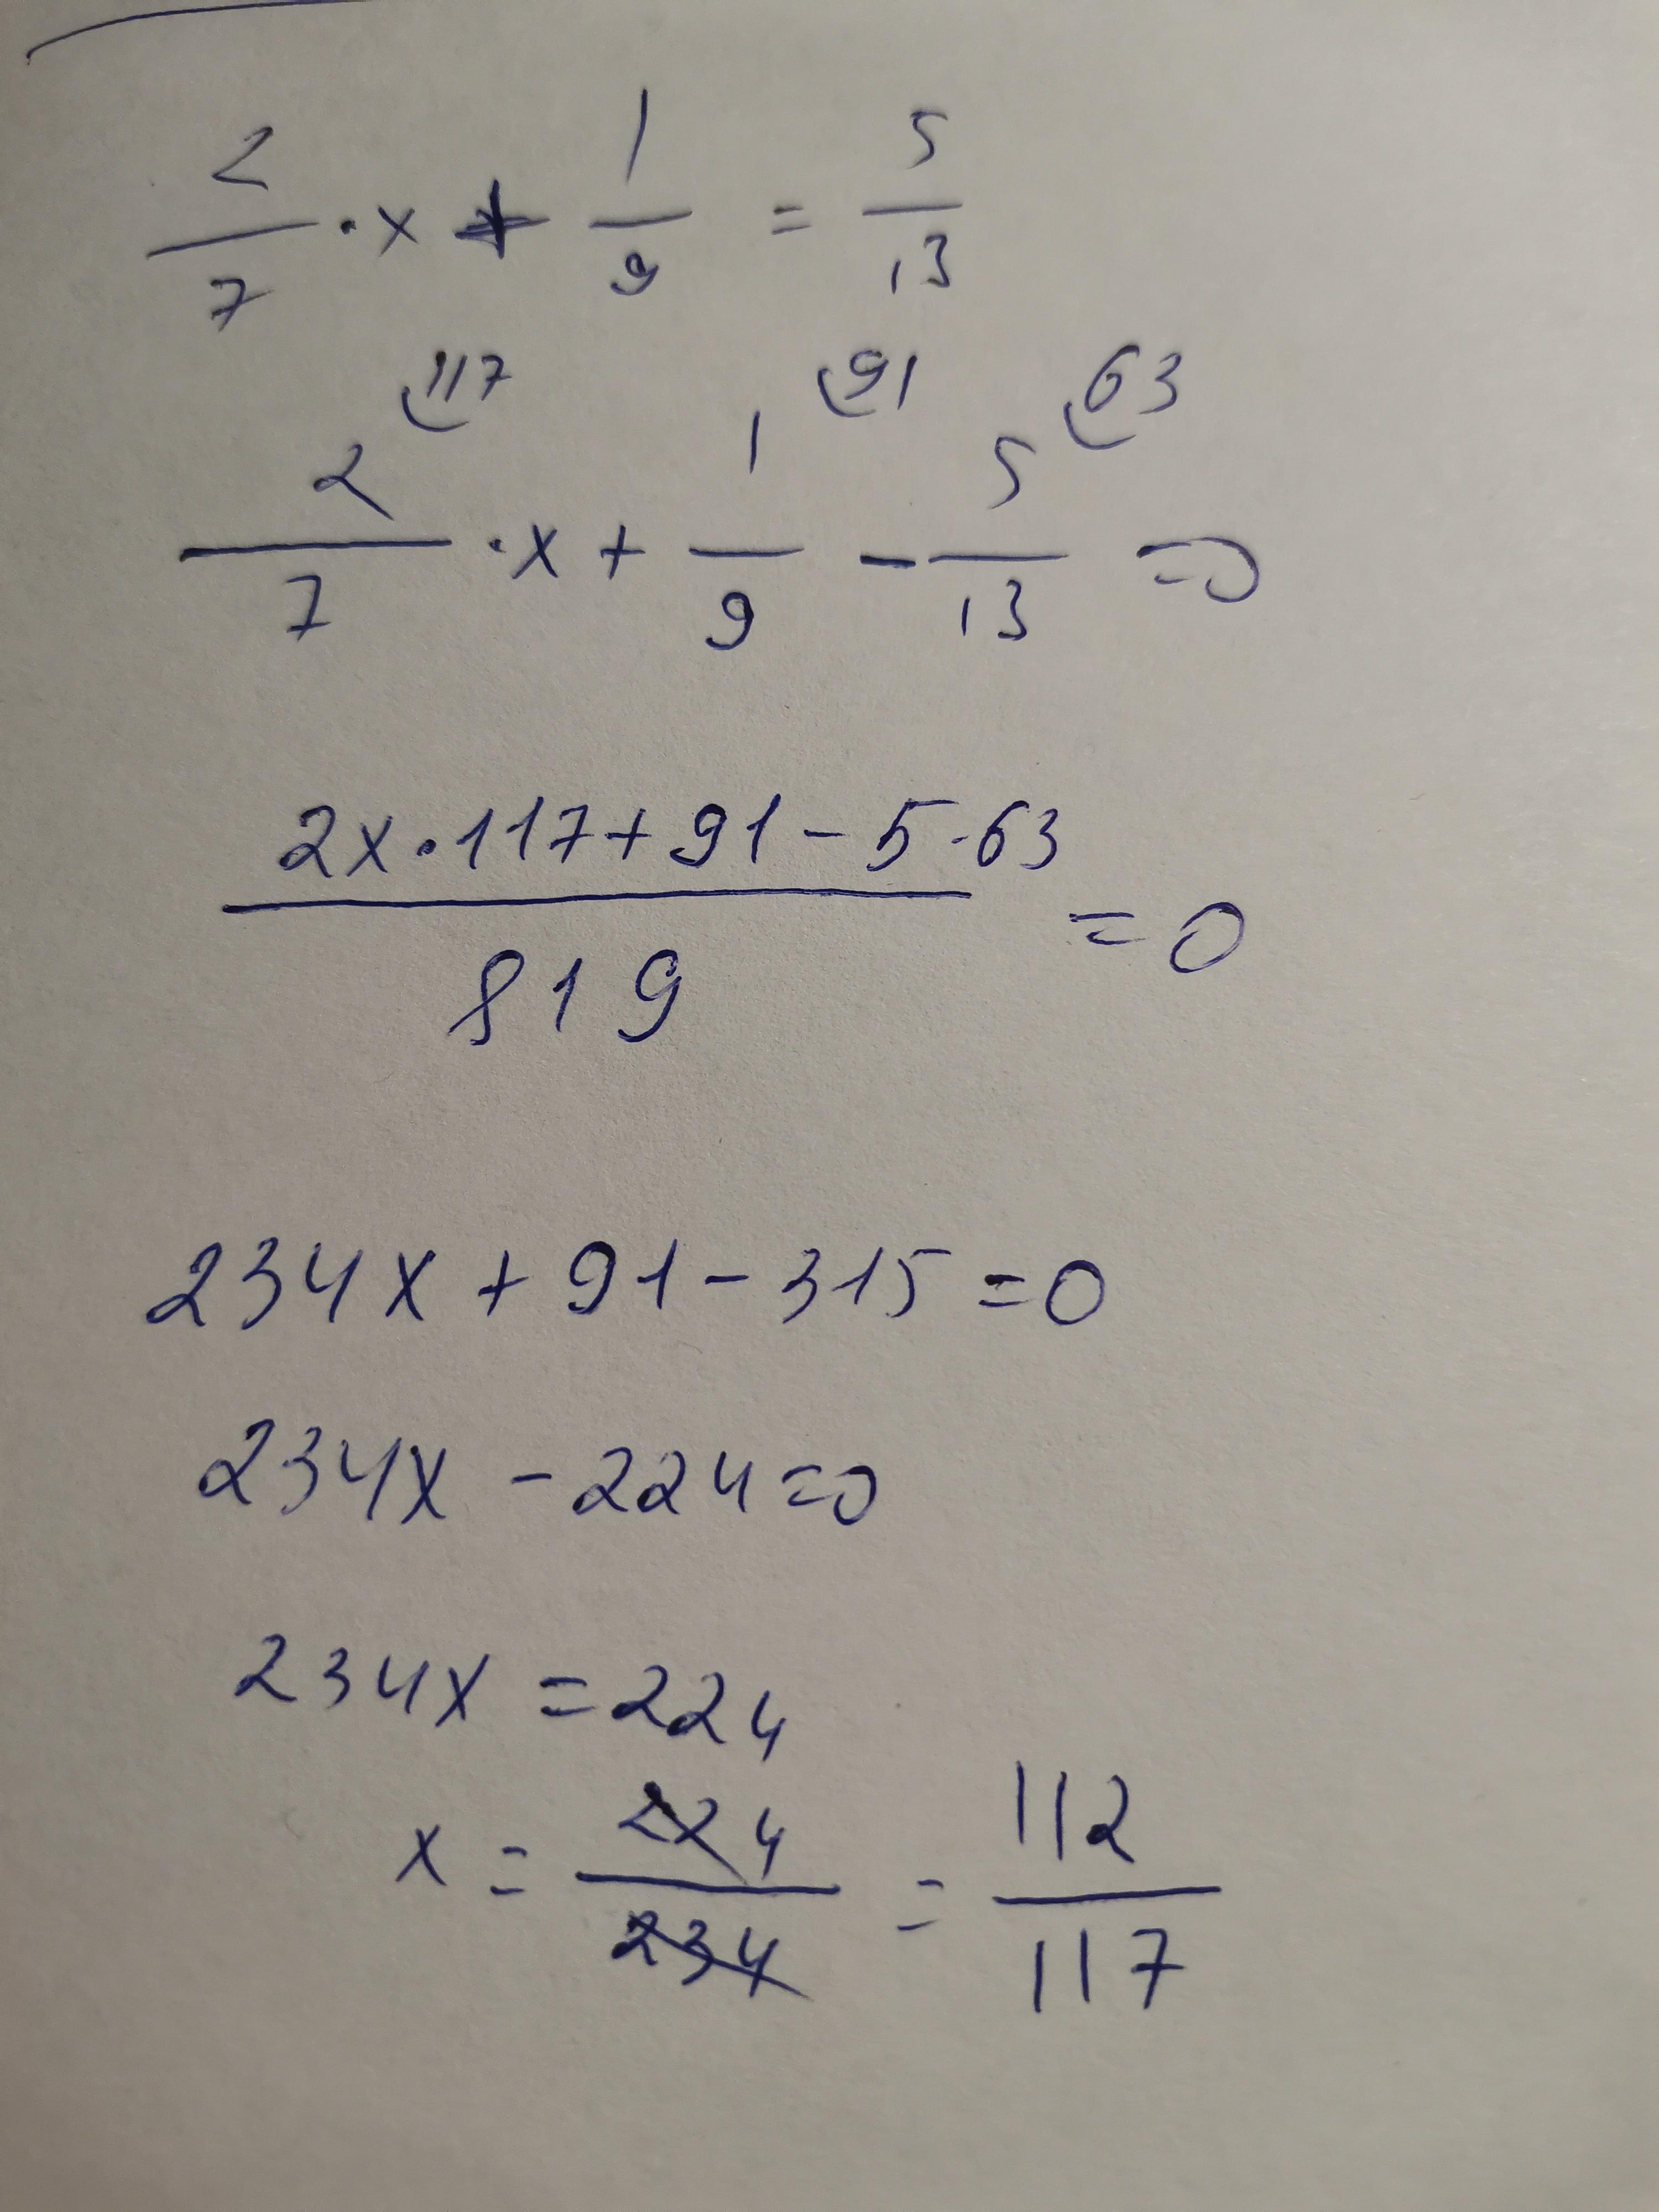 2/7 · x + 1/9 = 5/13
2/7 (117 · x + 1/9 (91 - 5/13 (63 = 0
(2x · 117 + 91 - 5 · 63)/819 = 0
234x + 91 - 315 = 0
234x - 224 = 0
234x = 224
x = 224/234 = 112/117